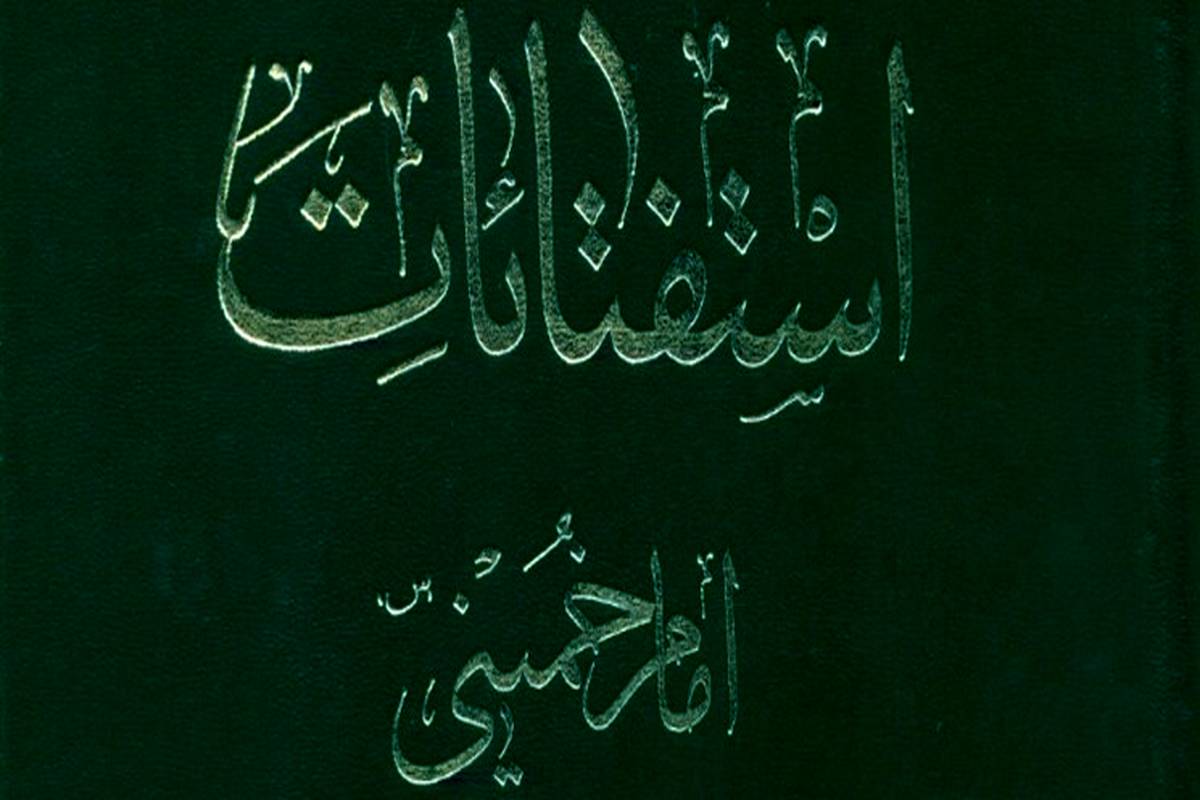 اِسْتِفْتٰائٰاتِ
امام خُمینیّ س